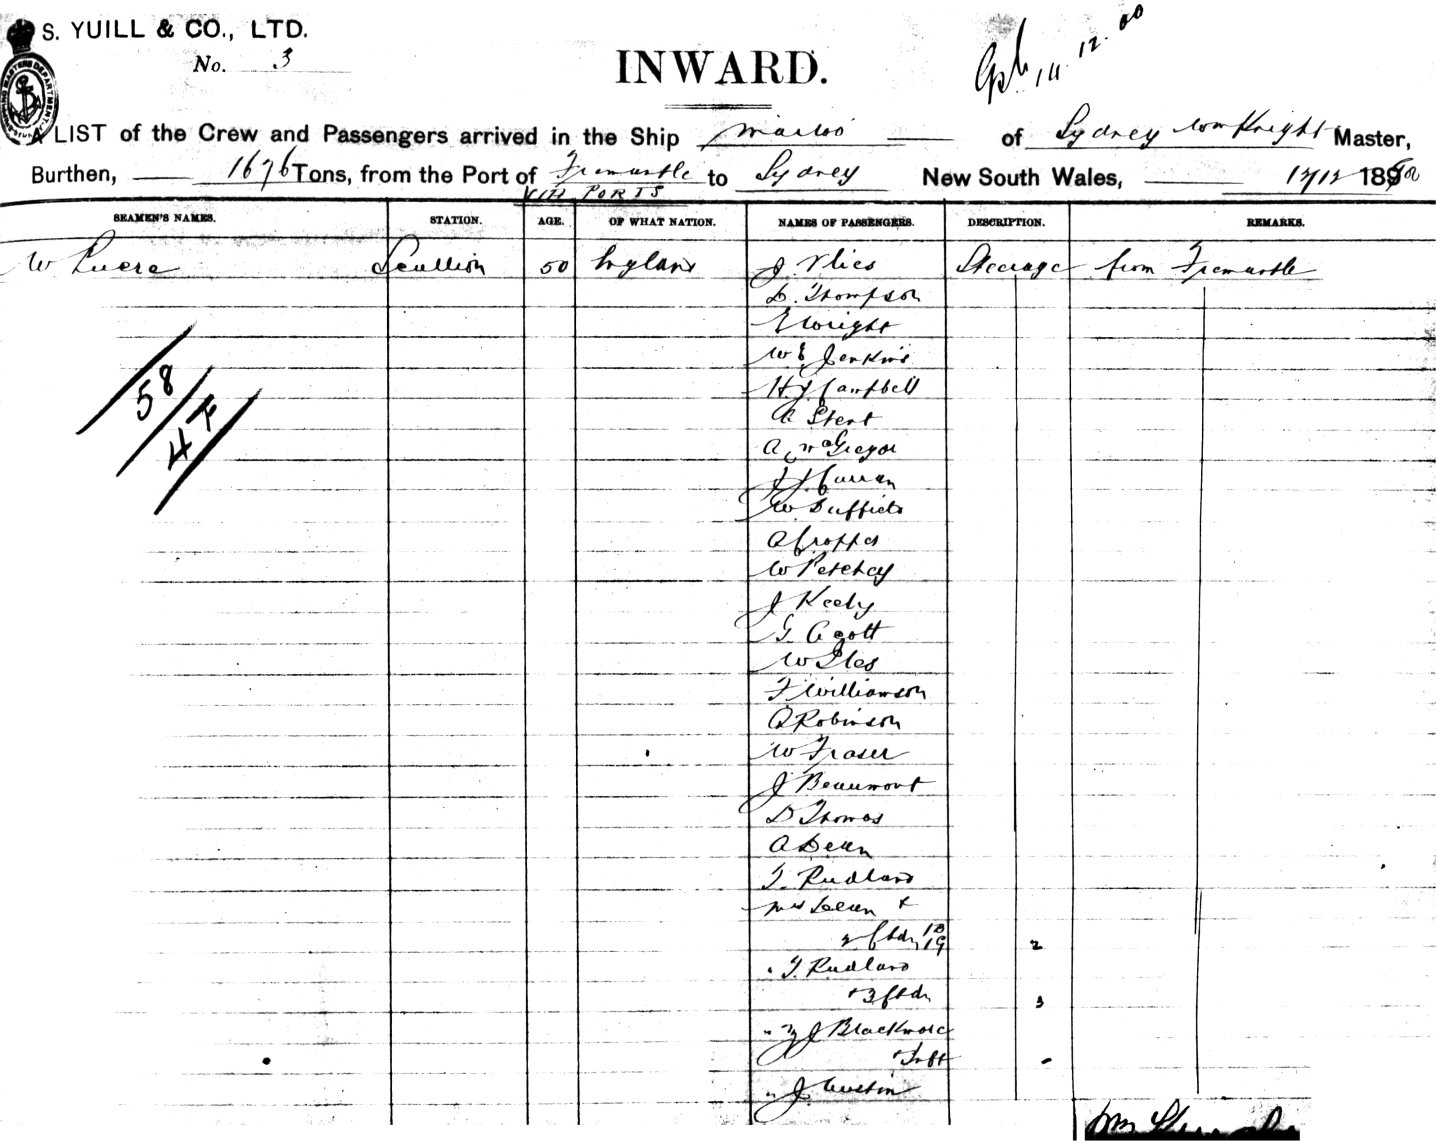 S. YUILL & CO., LTD.
No. 3
INWARD.
14.12.00
A LIST of the Crew and Passengers arrived in the Ship Marloo of Sydney Wm Knight Master,
Burthen, 1676 Tons, from the Port of Fremantle to Sydney New South Wales, 17/12 1890
VIA PORTS
SEAMEN'S NAMES. STATION. AGE. OF WHAT NATION. NAMES OF PASSENGERS. DESCRIPTION. REMARKS.
W Scullion 50 England J. Steerage from Fremantle
D. Thompson
E Wright
W E Jenkins
H. J. Campbell
A Stent
A McGregor
J J Curran
W. Duffield
A Cropper
W Petchey
J Keely
G. Scott
W Iles
F Williamson
A Robinson
W Fraser
J Beaumont
D Thomas
A Dean
T. Rudland
Mrs Dean &
2 Chdn 1B 1G 2
" T. Rudland
+ 3 Chdn 3
" J Blackmore
+ Inft -
" J. Austin
58
4 F
Wm